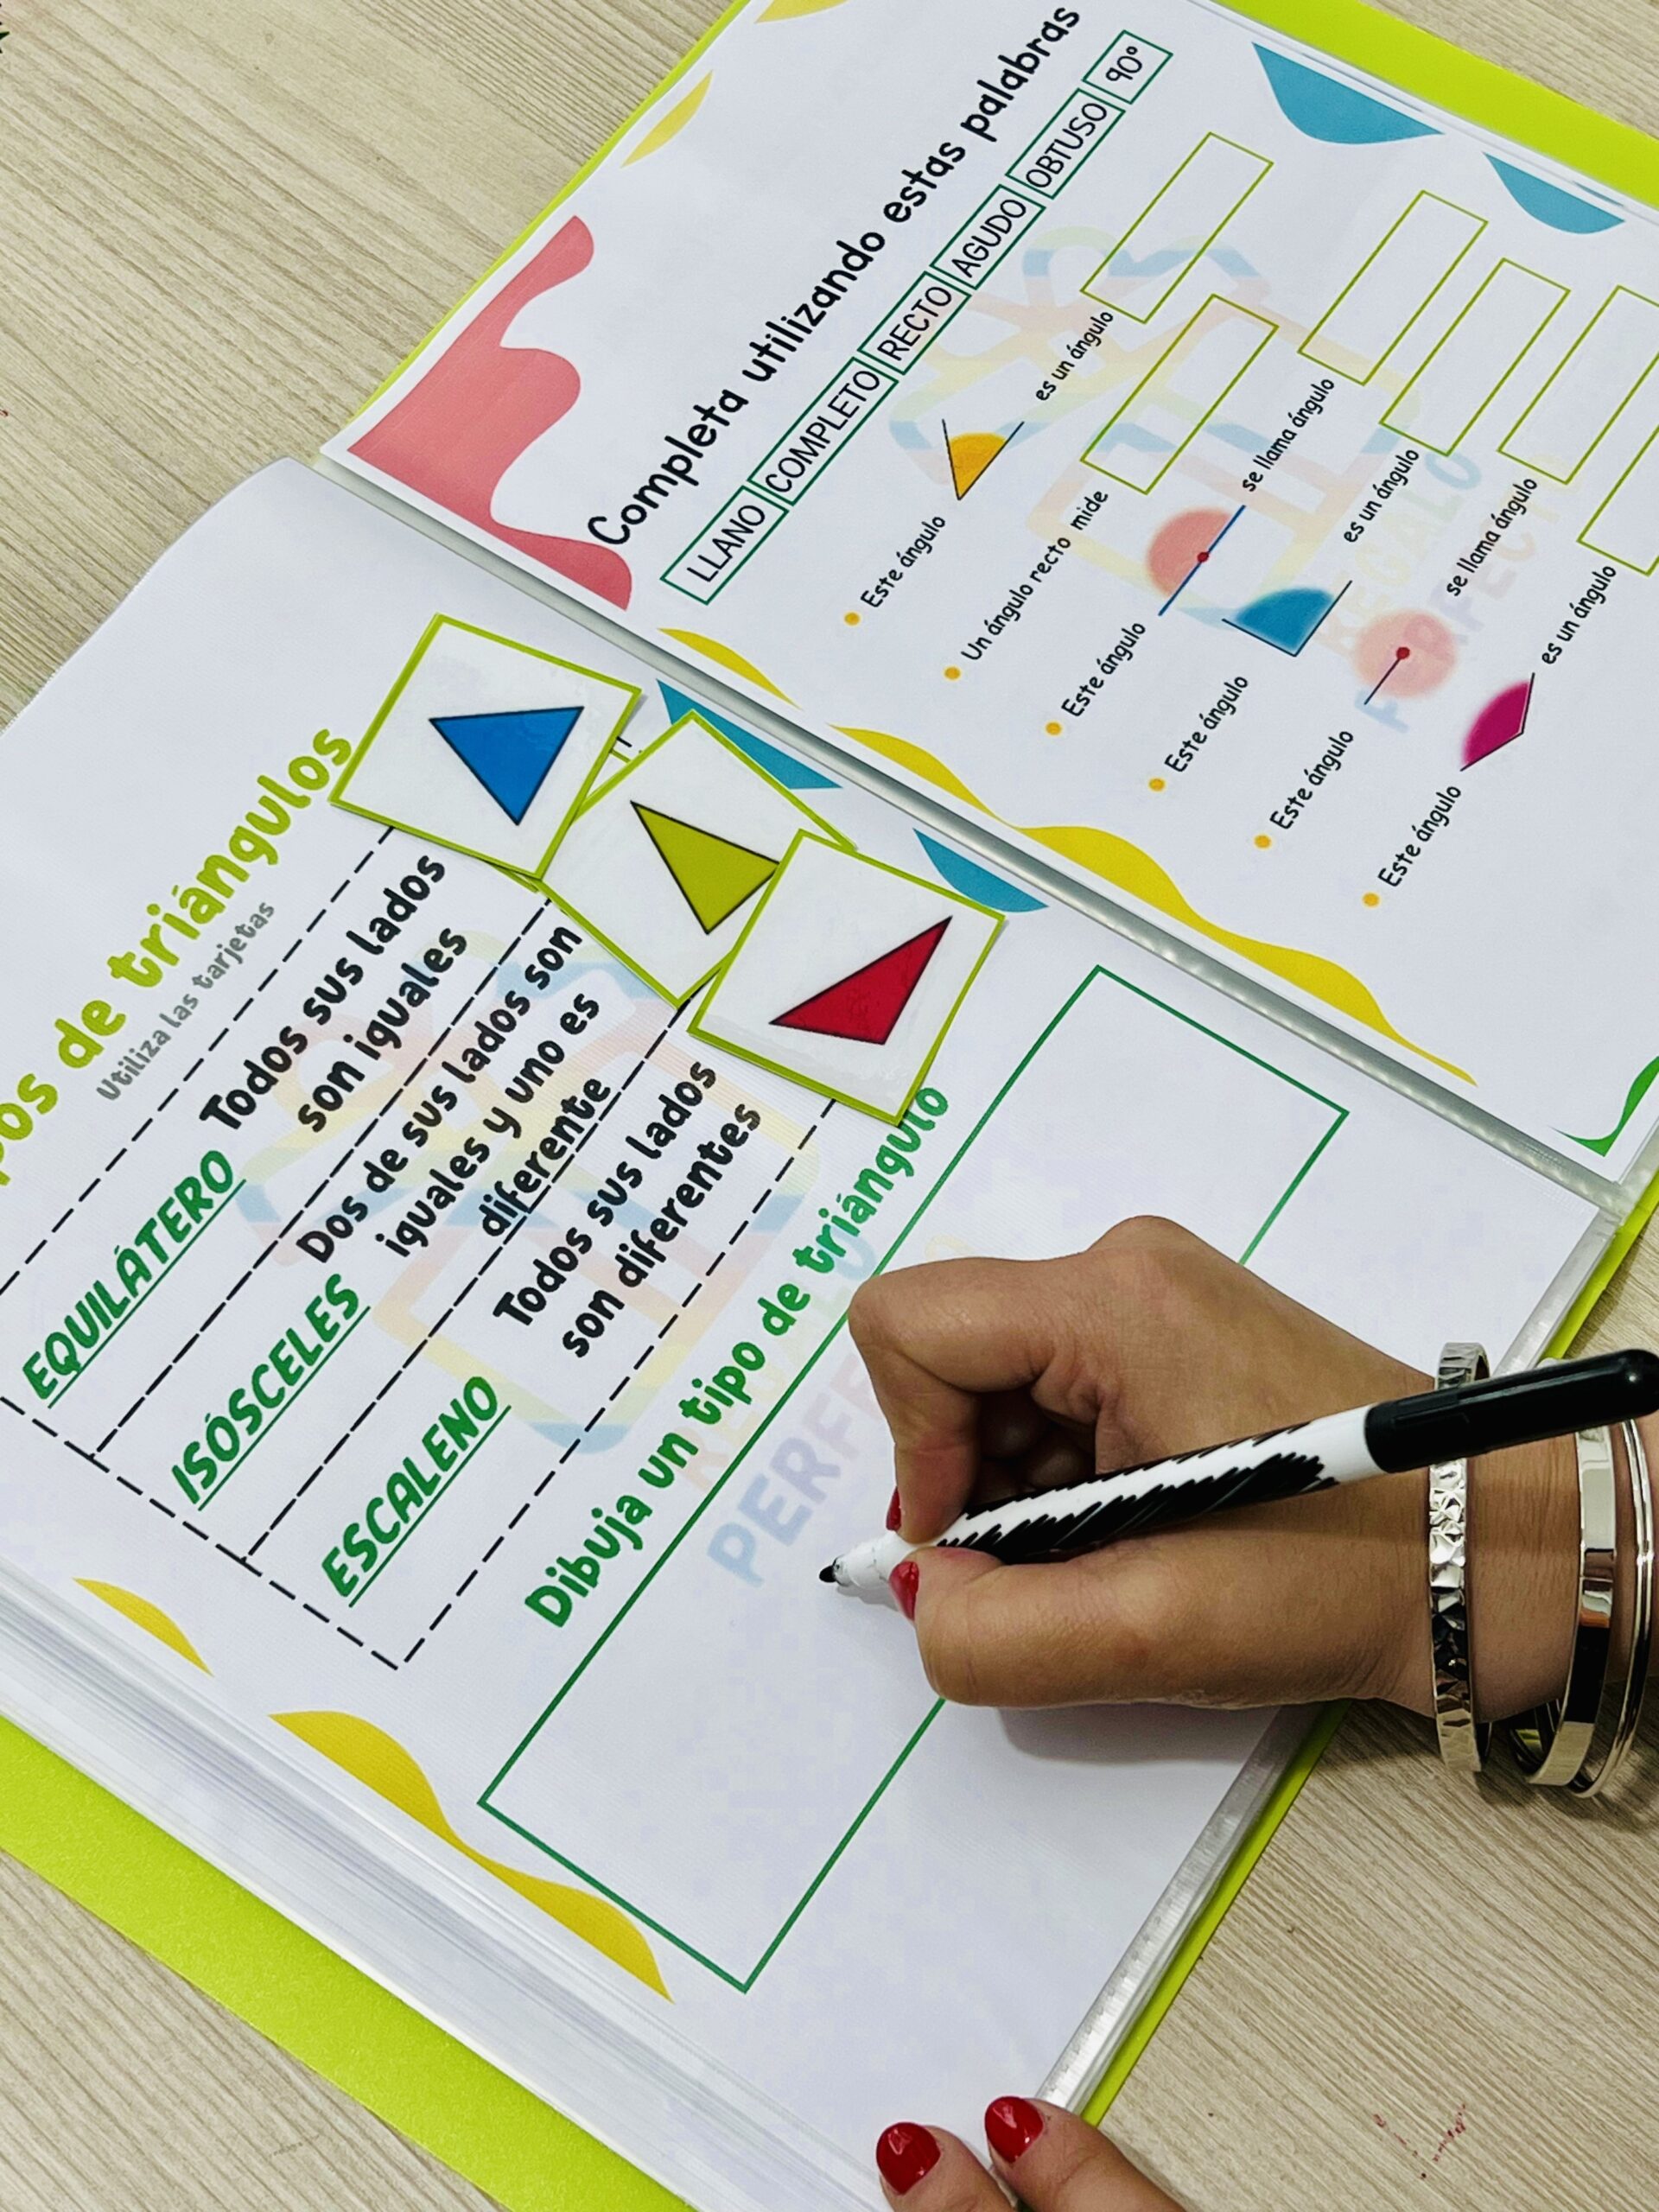 pos de triángulos
Utiliza las tarjetas
EQUILÁTERO
Todos sus lados
son iguales
ISÓSCELES
Dos de sus lados son
iguales y uno es
diferente
ESCALENO
Todos sus lados
son diferentes
Dibuja un tipo de triángulo
Completa utilizando estas palabras
LLANO COMPLETO RECTO AGUDO OBTUSO 90°
Este ángulo es un ángulo
Un ángulo recto mide
Este ángulo se llama ángulo
Este ángulo es un ángulo
Este ángulo se llama ángulo
Este ángulo es un ángulo
REGALO
PERFECTO